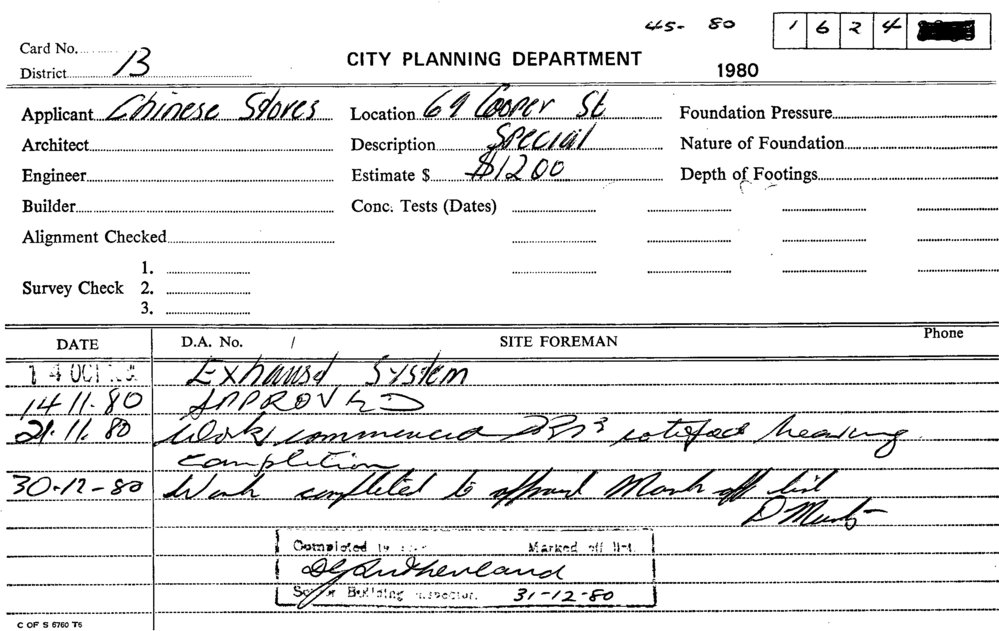 45- 80 1 6 2 4
Card No.
District 13
CITY PLANNING DEPARTMENT
1980
Applicant Chinese Stores
Location 69 Cooper St
Foundation Pressure
Architect
Description Special
Nature of Foundation
Engineer
Estimate $ $1200
Depth of Footings
Builder
Conc. Tests (Dates)
Alignment Checked
Survey Check
1.
2.
3.
DATE D.A. No. / SITE FOREMAN Phone
14 OCT Exhaust System
14.11.80 APPROVED
21.11.80 Work commenced nearing
completion
30-12-80 Work completed to approval Mark off list
D
Completed Marked off list.
Sutherland
Senior Building Inspector. 31-12-80
C OF S 6760 T6